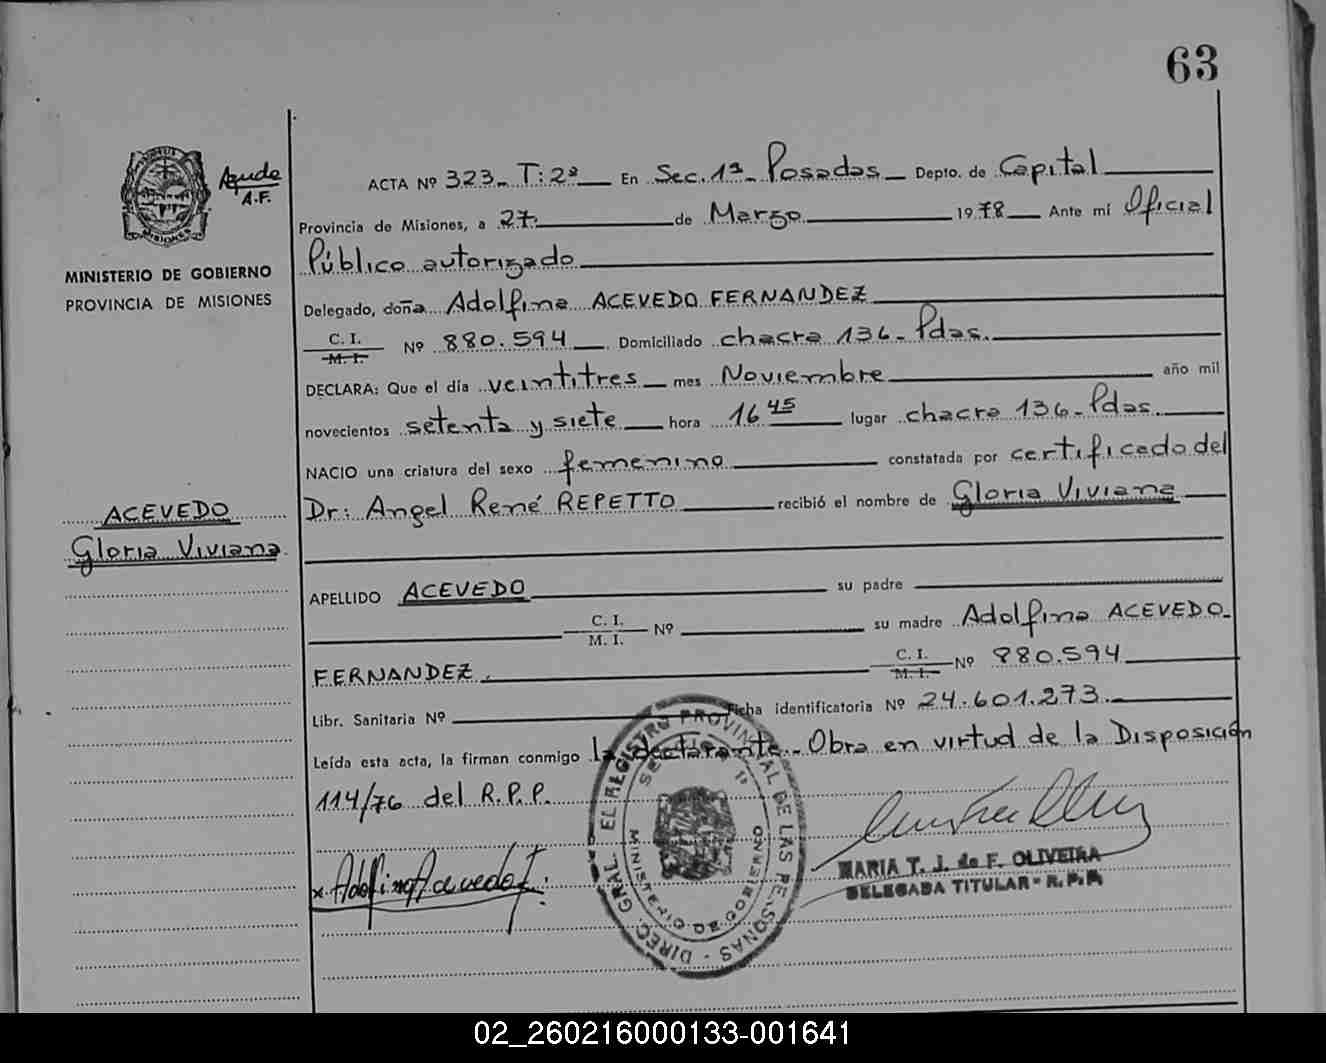 63
Ayudo
A.F.
MISIONES
MINISTERIO DE GOBIERNO
PROVINCIA DE MISIONES
ACEVEDO
Gloria Viviana
ACTA Nº 323 - T: 2º En Sec. 1ª - Posadas Depto. de Capital
Provincia de Misiones, a 27 de Marzo 1978 Ante mí Oficial
Público autorizado
Delegado, doña Adolfina ACEVEDO FERNANDEZ
C. I.
M. I. Nº 880.594 Domiciliado chacra 136 - Pdas.
DECLARA: Que el día veintitres mes Noviembre año mil
novecientos setenta y siete hora 16 45 lugar chacra 136 - Pdas.
NACIO una criatura del sexo femenino constatada por certificado del
Dr: Angel René REPETTO recibió el nombre de Gloria Viviana
APELLIDO ACEVEDO su padre
C. I.
M. I. Nº su madre Adolfina ACEVEDO
FERNANDEZ. C. I.
M. I. Nº 880.594
Libr. Sanitaria Nº Ficha identificatoria Nº 24.601.273
Leída esta acta, la firman conmigo la declarante - Obra en virtud de la Disposición
114/76 del R.P.P.
x Adolfina Acevedo f.
MARIA T. J. de F. OLIVEIRA
DELEGADA TITULAR - R.P.P.
DIREC. GRAL. EL REGISTRO PROVINCIAL DE LAS PERSONAS
MINISTERIO DE GOBIERNO
02_260216000133-001641